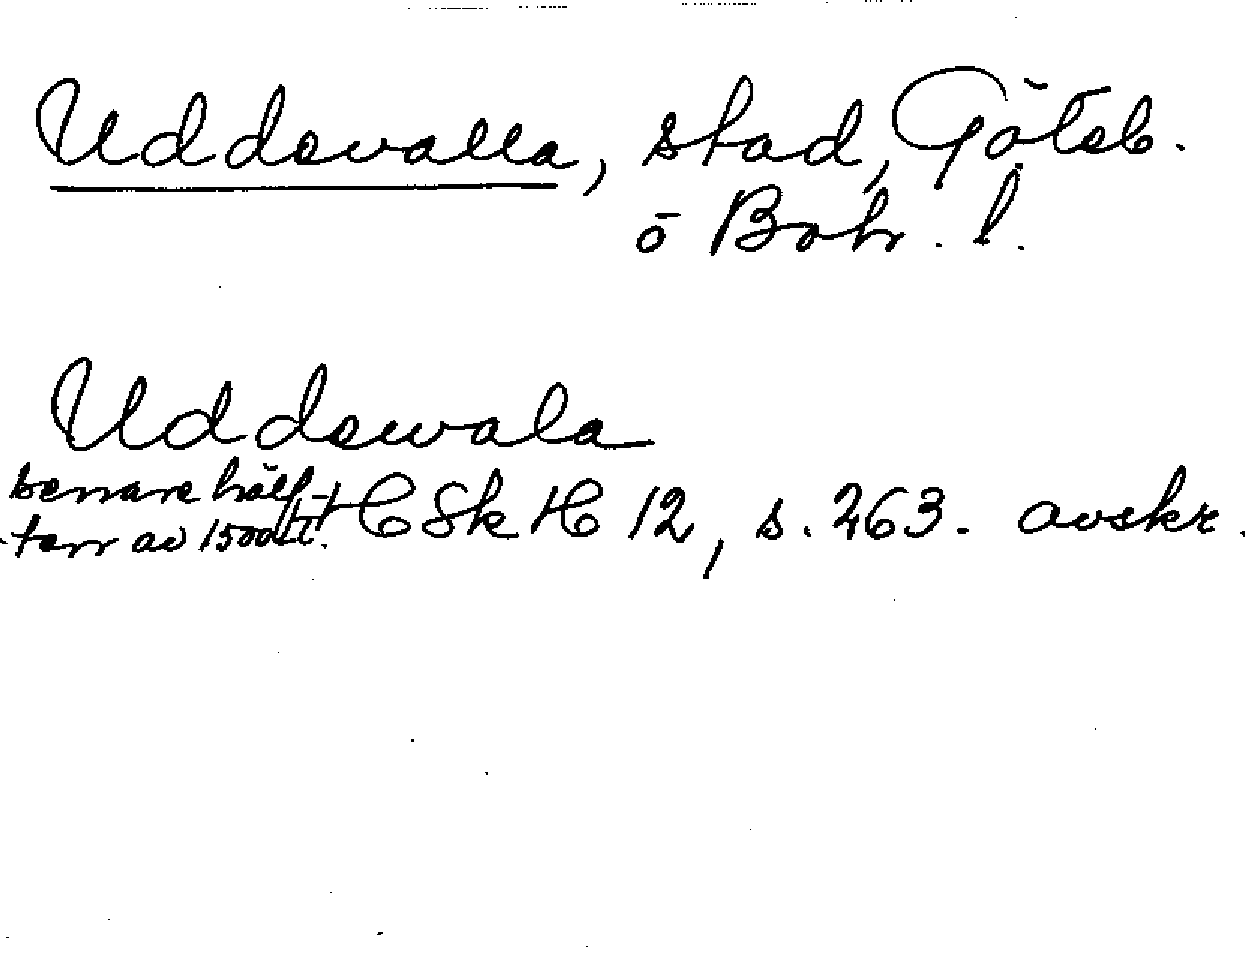 Uddevalla, stad, Göteb.
o Boh. l.
Uddewala
senare hälf-
ten av 1500-t. HSH 12, s. 263. avskr.